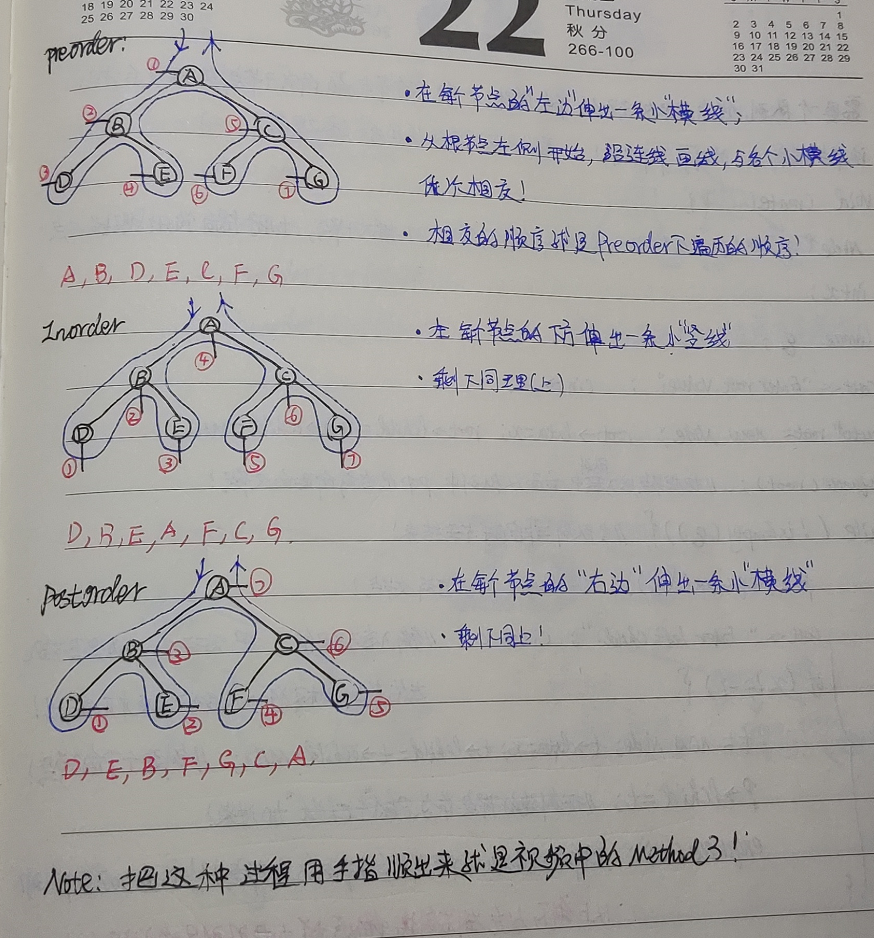 18 19 20 21 22 23 24
25 26 27 28 29 30 31
22
Thursday
秋分
266-100
1
2 3 4 5 6 7 8
9 10 11 12 13 14 15
16 17 18 19 20 21 22
23 24 25 26 27 28 29
30 31
preorder:
① A
② B ⑤ C
③ D ④ E ⑥ F ⑦ G
·在每个节点的"左边"伸出一条小"横线";
·从根节点左侧开始,沿连线画线,与各个小横线
依次相交!
·相交的顺序就是Preorder下遍历的顺序!
A, B, D, E, C, F, G
Inorder
A
④
B C
② ⑥
D E F G
① ③ ⑤ ⑦
·在每个节点的下方伸出一条小"竖线"
·剩下同理(上)
D, B, E, A, F, C, G.
Postorder
A ⑦
B ③ C ⑥
D ① E ② F ④ G ⑤
·在每个节点的"右边"伸出一条小"横线"
·剩下同上!
D, E, B, F, G, C, A.
Note: 把这种过程用手指顺出来就是视频中的Method 3!